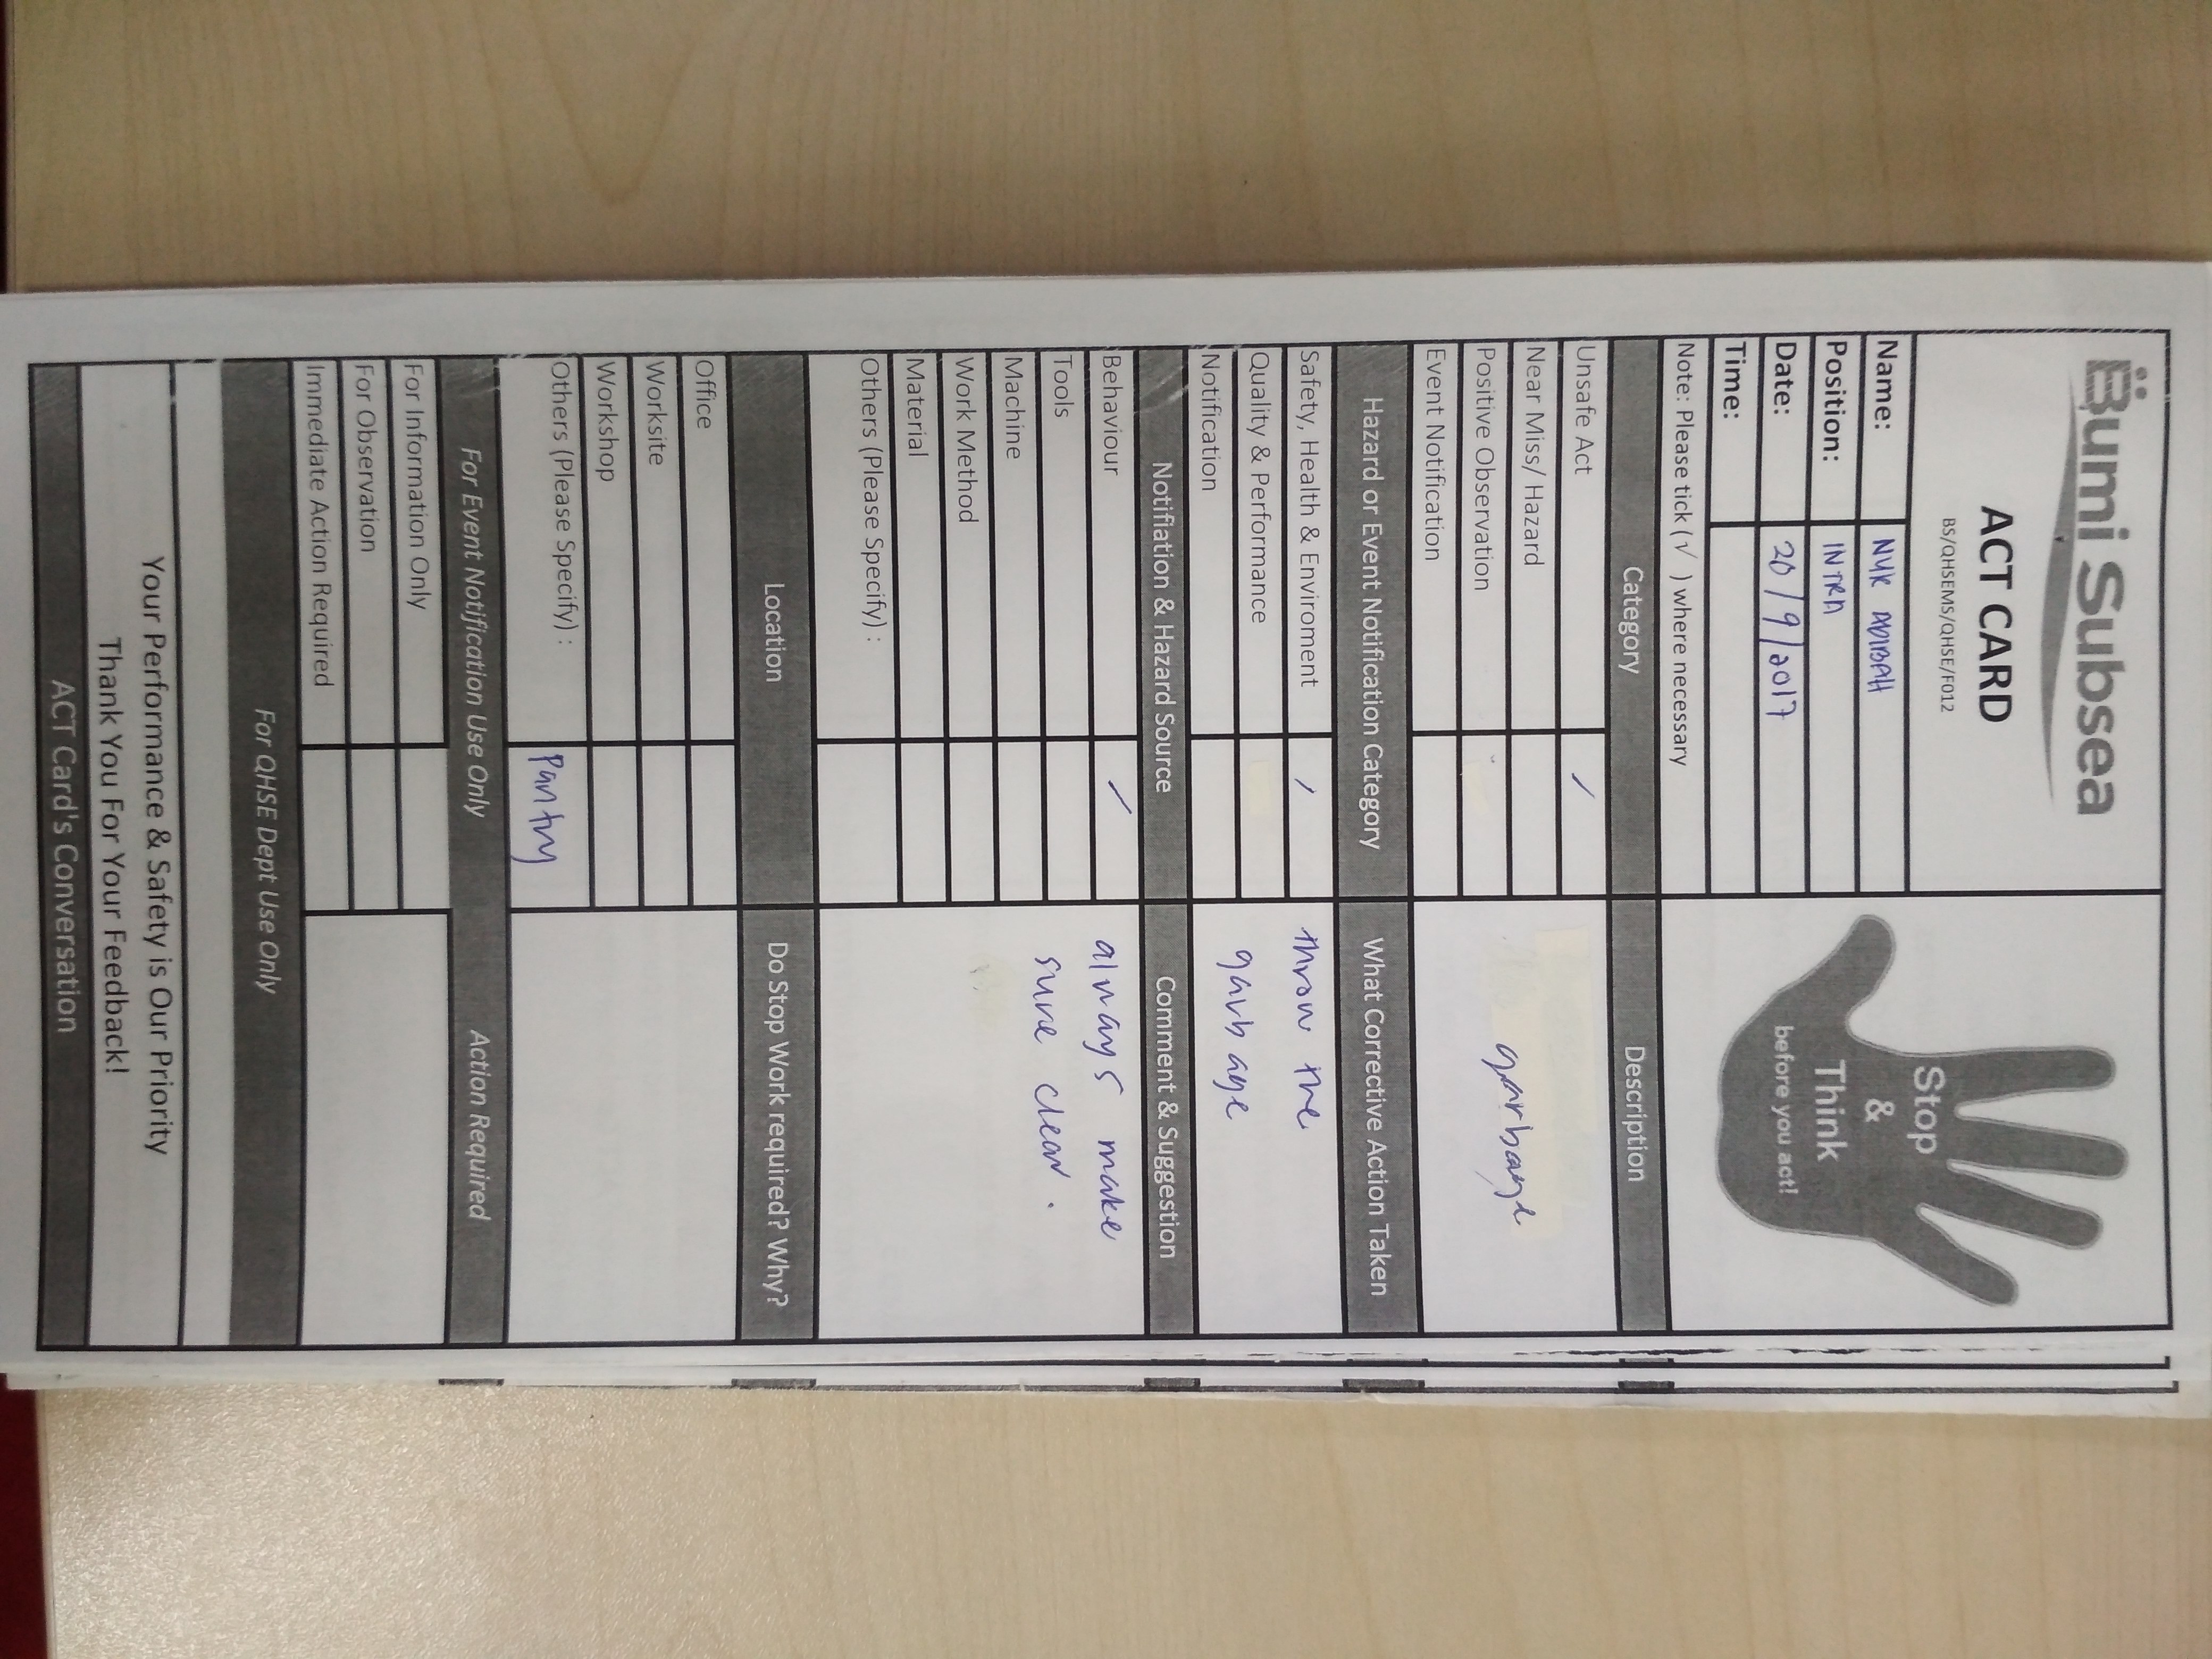 Bumi Subsea
ACT CARD
BS/QHSEMS/QHSE/F012
Stop
&
Think
before you act!
Name: NUR ADIBAH
Position: INTRN
Date: 20/9/2017
Time:
Note: Please tick (√ ) where necessary
Category Description
Unsafe Act ✓
Near Miss/ Hazard
Positive Observation
garbage
Event Notification
Hazard or Event Notification Category What Corrective Action Taken
Safety, Health & Enviroment ✓ throw the
Quality & Performance garbage
Notification
Notifiation & Hazard Source Comment & Suggestion
Behaviour ✓ always make
Tools sure clear.
Machine
Work Method
Material
Others (Please Specify) :
Location Do Stop Work required? Why?
Office
Worksite
Workshop
Others (Please Specify) : Pantry
For Event Notification Use Only Action Required
For Information Only
For Observation
Immediate Action Required
For QHSE Dept Use Only
Your Performance & Safety is Our Priority
Thank You For Your Feedback!
ACT Card's Conversation